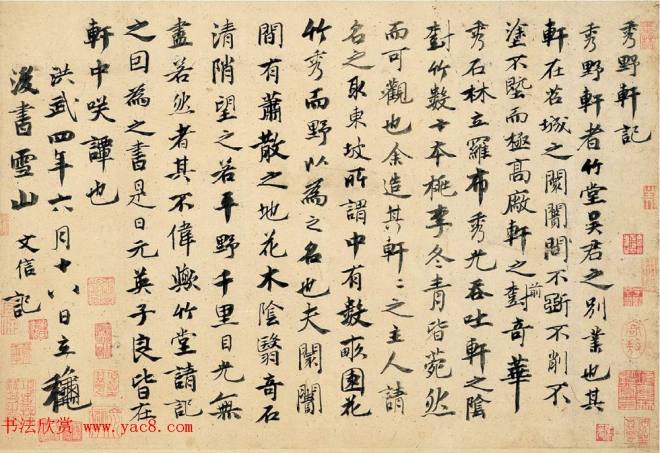 秀野軒記
秀野軒者竹堂吳君之別業也其
軒在茗城之闤闠間不斵不削不
塗不墍而極高厰軒之前對奇華
秀石林立羅布秀光吞吐軒之陰
對竹數十本桃李冬青皆菀然
而可觀也余造其軒二之主人請
名之取東坡所謂中有數畮園花
竹秀而野以為之名也夫闤闠
間有蕭散之地花木陰翳奇石
清陗望之若平野千里目光無
盡若然者其不偉歟竹堂請記
之回為之書是日元英子良皆在
軒中咲譚也
洪武四年六月十八日立穐
後書雪山 文信記
书法欣赏
www.yac8.com